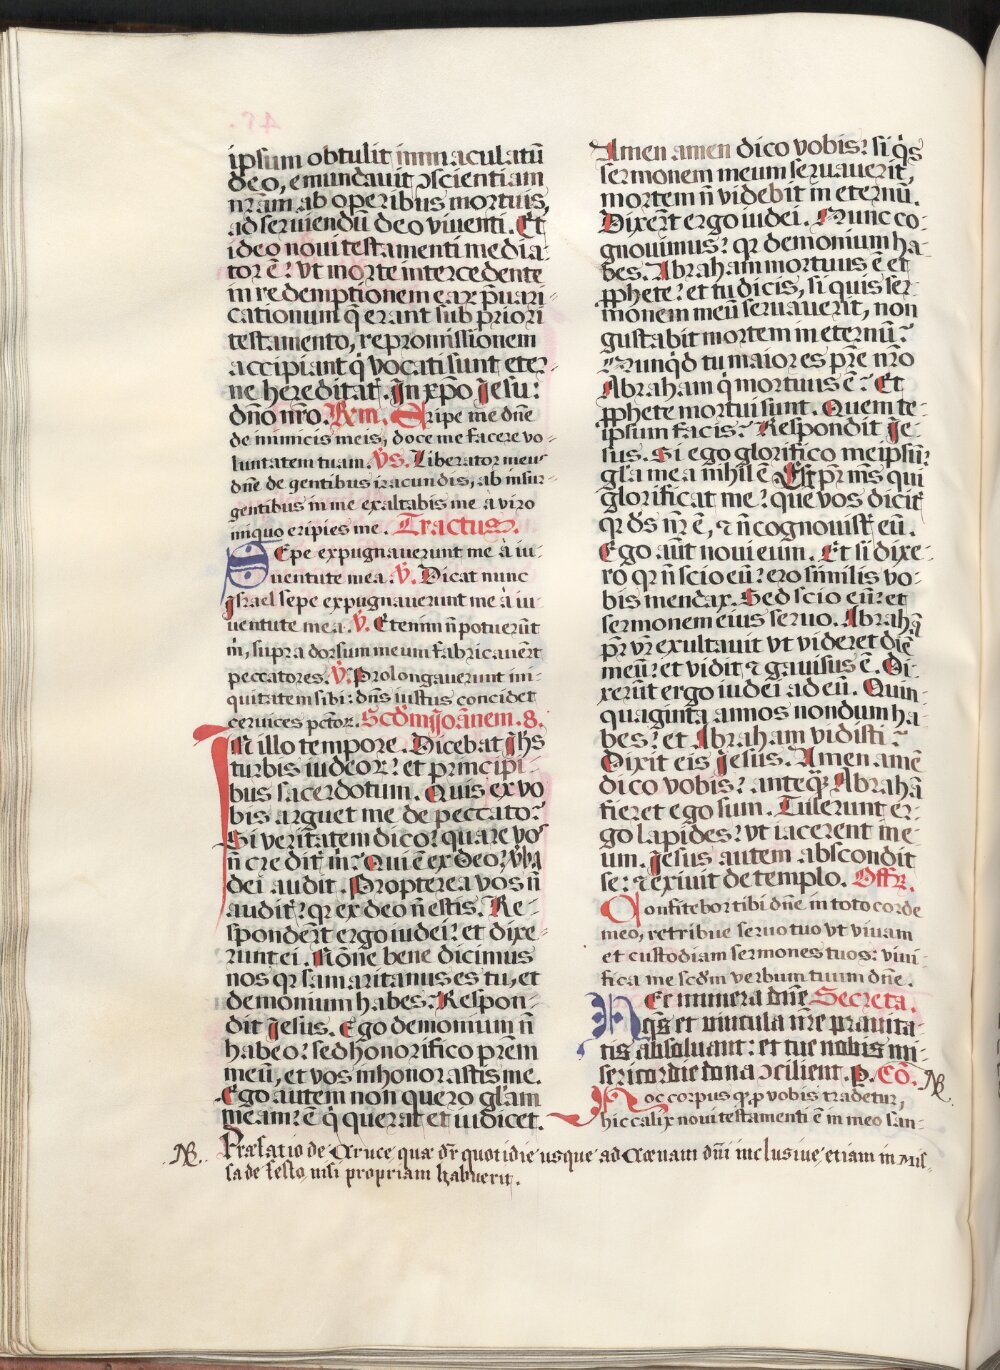 ipsum obtulit immaculatū
deo, emundavit ↄscientiam
nr̄am ab operibus mortuis,
ad serviendū deo viventi. Et
ideo novi testamenti media-
tor ē: vt morte intercedente
in redemptionem eaꝝ p̄vari-
cationum q̄ erant sub priori
testamento, repromissionem
accipiant q̇ vocati sunt eter-
ne hereditat̄. In xp̄o Jesu:
dn̄o nr̄o. Rm̄. Eripe me dn̄e
de inimicis meis, doce me facere vo-
luntatem tuam. V̄s. Liberator meus
dn̄e de gentibus iracundis, ab insur-
gentibus in me exaltabis me à viro
iniquo eripies me. Tractus.
Sepe expugnauerunt me à iu-
uentute mea. V̄. Dicat nunc
Israel sepe expugnauerunt me à iu-
uentute mea. V̄. Etenim n̄ potuerūt
m̄, supra dorsum meum fabricauer̄t
peccatores. V̄. Prolongauerunt ini-
quitatem sibi: dn̄s iustus concidet
cervices pct̄oꝝ. Scd̄m Joānem. 8.
IN illo tempore. Dicebat Jh̄s
turbis iudeoꝝ: et principi-
bus sacerdotum. Quis ex vo
bis arguet me de peccato?
Si veritatem dico: quare vos
n̄ credit̄ m̄? Qui ē ex deo: v̄ba
dei audit. Propterea vos n̄
audit̄: qꝛ ex deo n̄ estis. Re-
sponder̄t ergo iudei: et dixe-
runt ei. Nōne bene dicimus
nos qꝛ samaritanus es tu, et
demonium habes: Respon-
dit Jesus. Ego demonium n̄
habeo: sed honorifico pr̄em
meū, et vos inhonorastis me.
Ego autem non quero gl̄am
meam: ē q̇ querat et iudicet.
Amen amen dico vobis: si q̇s
sermonem meum servaverit,
mortem n̄ videbit in eternū.
Dixer̄t ergo iudei. Nunc co-
gnovimus: qꝛ demonium ha-
bes. Abraham mortuus ē et
ꝓphete: et tu dicis, si quis ser
monem meū servaverit, non
gustabit mortem in eternū?
Nunq̇d tu maior es pr̄e nr̄o
Abraham q̇ mortuus ē: Et
ꝓphete mortui sunt. Quem te-
ipsum facis? Respondit Je-
sus. Si ego glorifico meipsū:
gl̄a mea nihil ē. Est pr̄ m̄s qui
glorificat me: que vos dicit̄
qꝛ d̄s nr̄ ē, ⁊ n̄ cognovist̄ eū.
Ego aūt novi eum. Et si dixe-
ro qꝛ n̄ scio eū: ero similis vo-
bis mendax. Sed scio eū: et
sermonem eius servo. Abrahā
pr̄ vr̄ exultavit vt videret diē
meū: et vidit ⁊ gavisus ē. Di-
xerūt ergo iudei ad eū. Quin-
quaginta annos nondum ha-
bes: et Abraham vidisti?
Dixit eis Jesus. Amen amē
dico vobis: anteq̄ꝫ Abrahā
fieret ego sum. Tulerunt er-
go lapides: vt iacerent in e-
um. Jesus autem abscondit
se: ⁊ exivit de templo. Offꝝ.
Confitebor tibi dn̄e in toto corde
meo, retribue seruo tuo vt vivam
et custodiam sermones tuos: vivi-
fica me scd̄m verbum tuum dn̄e.
Hec munera dn̄e Secreta.
q̄s et vincula nr̄e pravita-
tis absolvant: et tue nobis mi-
sericordie dona ↄcilient. p. Cō. NB.
Hoc corpus q̄ ꝓ vobis tradetur,
hic calix novi testamenti ē in meo san-
NB. Præfatio de Cruce quæ dr̄ quotidie usque ad Cœnam dn̄i inclusive, etiam in Mis-
sa de festo, nisi propriam habuerit.